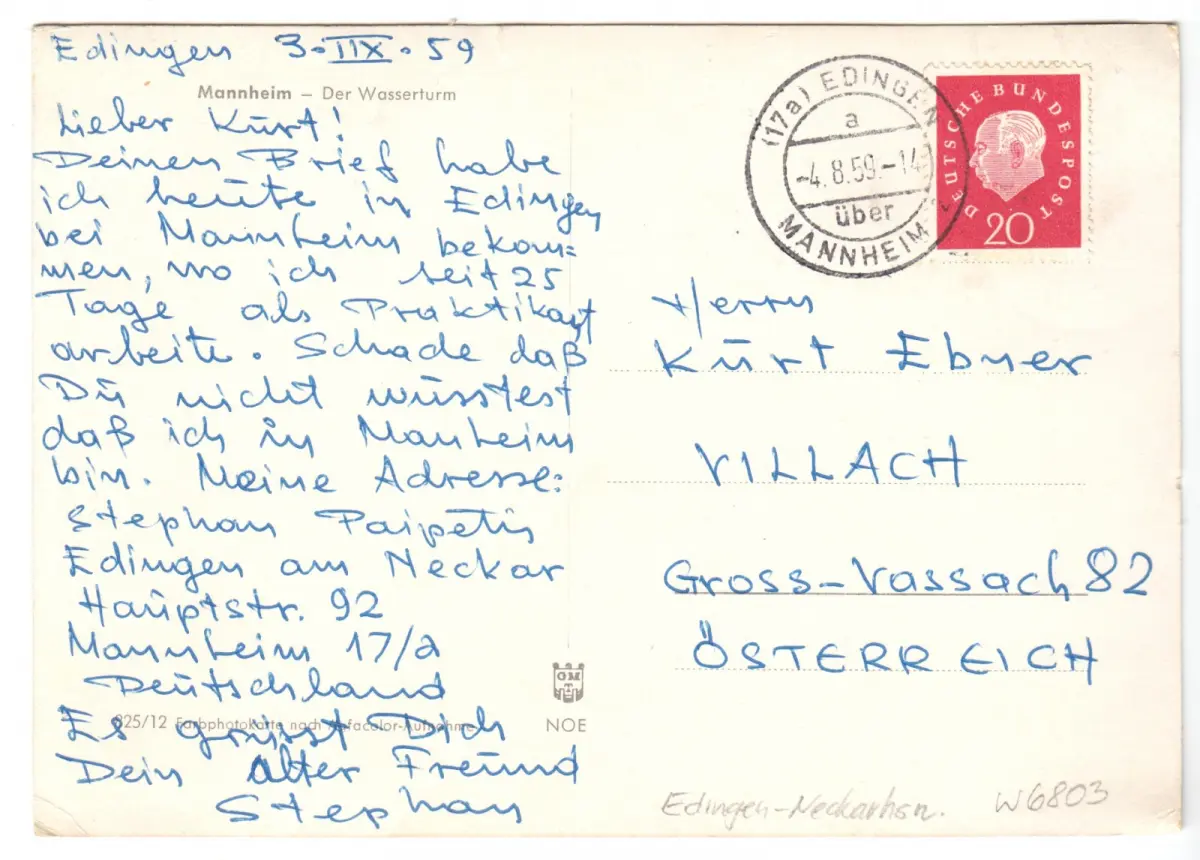 Edingen 3.IIX.59
Mannheim – Der Wasserturm
Lieber Kurt!
Deinen Brief habe
ich heute in Edingen
bei Mannheim bekom=
men, wo ich seit 25
Tage als Praktikant
arbeite. Schade daß
Du nicht wusstest
daß ich in Manheim
bin. Meine Adresse:
Stephan Paipetis
Edingen am Neckar
Hauptstr. 92
Mannheim 17/a
Deutschland
825/12 Farbphotokarte nach Agfacolor-Aufnahme
Es grüsst Dich
Dein alter Freund
Stephan
GM
NOE
(17a) EDINGEN
a
-4.8.59.-14
über
MANNHEIM
DEUTSCHE BUNDESPOST
20
Herrn
Kurt Ebner
VILLACH
Gross-Vassach 82
ÖSTERREICH
Edingen-Neckarhsn. W6803